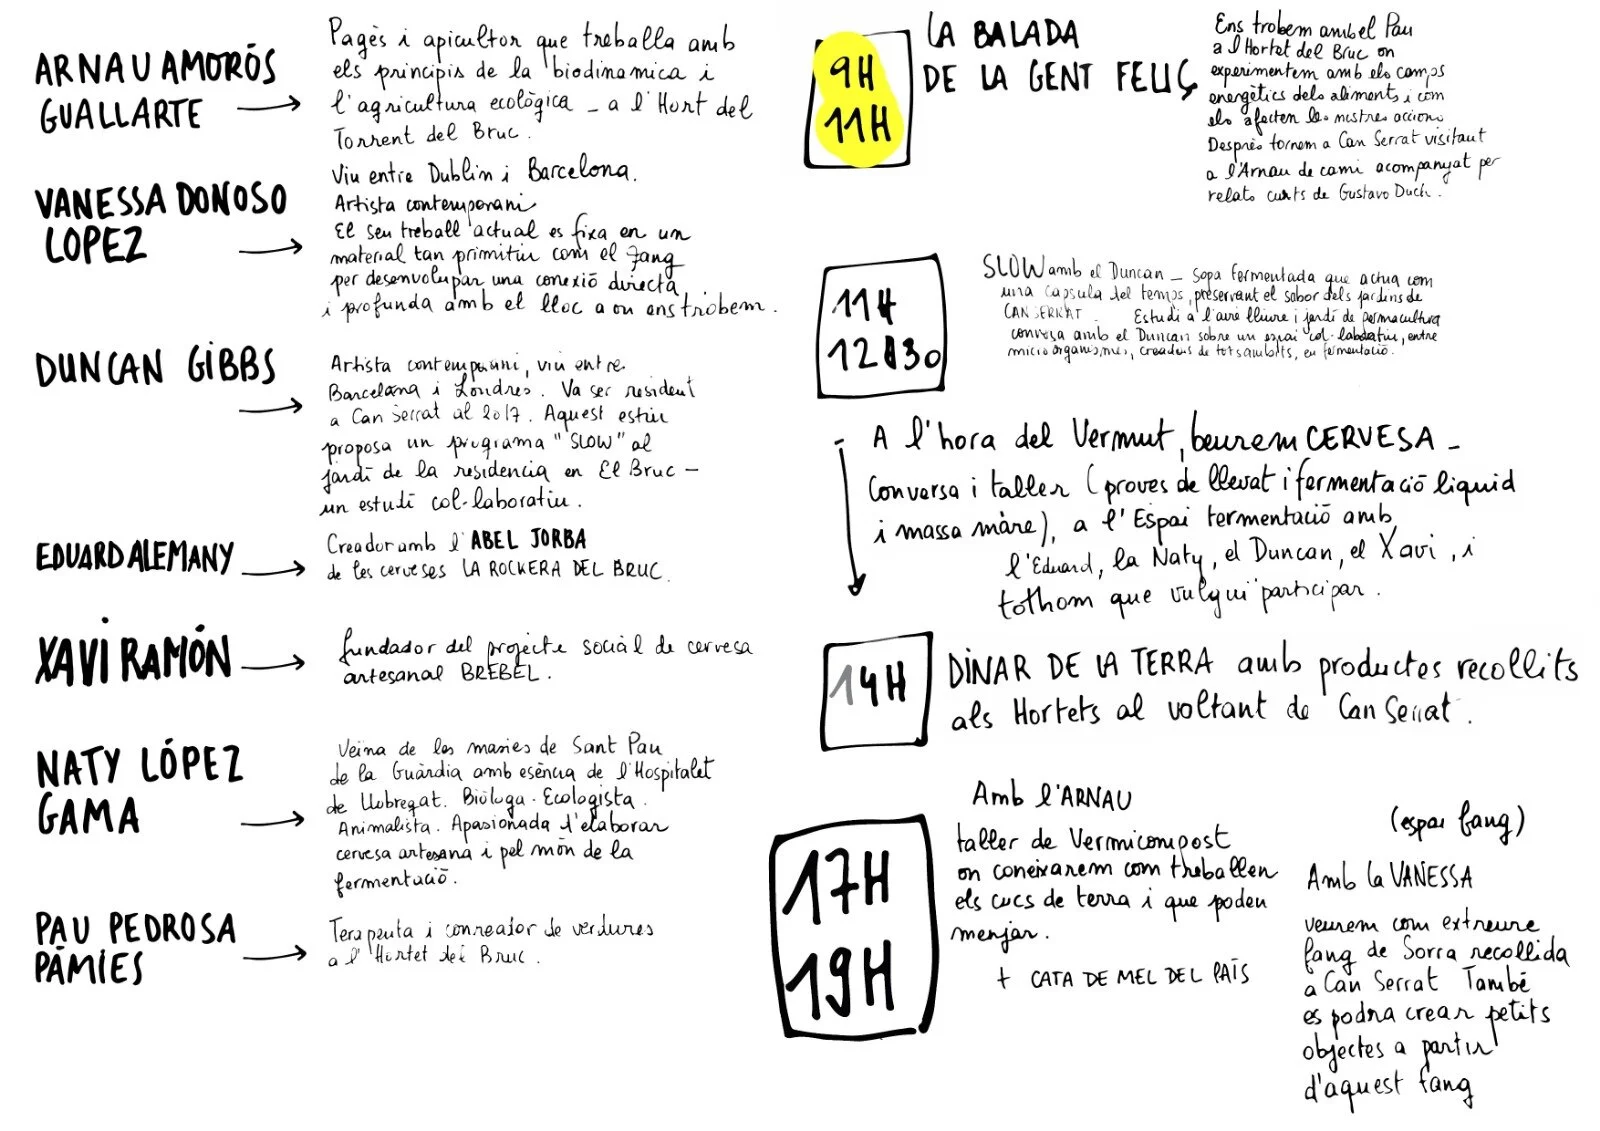 ARNAU AMORÓS
GUALLARTE
Pagès i apicultor que treballa amb
els principis de la biodinamica i
l'agricultura ecològica - a l'Hort del
Torrent del Bruc.
VANESSA DONOSO
LOPEZ
Viu entre Dublin i Barcelona.
Artista contemporani
El seu treball actual es fixa en un
material tan primitiu com el fang
per desenvolupar una conexió directa
i profunda amb el lloc a on ens trobem.
DUNCAN GIBBS
Artista contemporani, viu entre
Barcelona i Londres. Va ser resident
a Can Serrat al 2017. Aquest estiu
proposa un programa "SLOW" al
jardí de la residencia en El Bruc -
un estudi col·laboratiu.
EDUARD ALEMANY
Creador amb l'ABEL JORBA
de les cerveses LA ROCKERA DEL BRUC.
XAVI RAMÓN
fundador del projecte social de cervesa
artesanal BREBEL.
NATY LÓPEZ
GAMA
Veina de les masies de Sant Pau
de la Guàrdia amb esència de l'Hospitalet
de Llobregat. Biòloga. Ecologista.
Animalista. Apasionada d'elaborar
cervesa artesana i pel món de la
fermentació.
PAU PEDROSA
PÀMIES
Terapeuta i conreador de verdures
a l'Hortet del Bruc.
9H
11H
LA BALADA
DE LA GENT FELIÇ
Ens trobem amb el Pau
a l'Hortet del Bruc on
experimentem amb els camps
energètics dels aliments i com
els afecten les nostres accions
Després tornem a Can Serrat visitant
a l'Arnau de camí acompanyat per
relats curts de Gustavo Duch.
11H
12H30
SLOW amb el Duncan - sopa fermentada que actua com
una capsula del temps, preservant el sabor dels jardins de
CAN SERRAT. Estudi a l'aire lliure i jardí de permacultura
conversa amb el Duncan sobre un espai col·laboratiu, entre
microorganismes, creadors de tots ambits, en fermentació.
- A l'hora del Vermut, beurem CERVESA -
Conversa i taller (proves de llevat i fermentació liquid
i massa màre), a l'Espai fermentació amb
l'Eduard, la Naty, el Duncan, el Xavi, i
tothom que vulgui participar.
14H
DINAR DE LA TERRA amb productes recollits
als Hortets al voltant de Can Serrat.
17H
19H
Amb l'ARNAU
taller de Vermicompost
on coneixarem com treballen
els cucs de terra i que poden
menjar.
+ CATA DE MEL DEL PAÏS
(espai fang)
Amb la VANESSA
veurem com extreure
fang de Sorra recollida
a Can Serrat També
es podra crear petits
objectes a partir
d'aquest fang